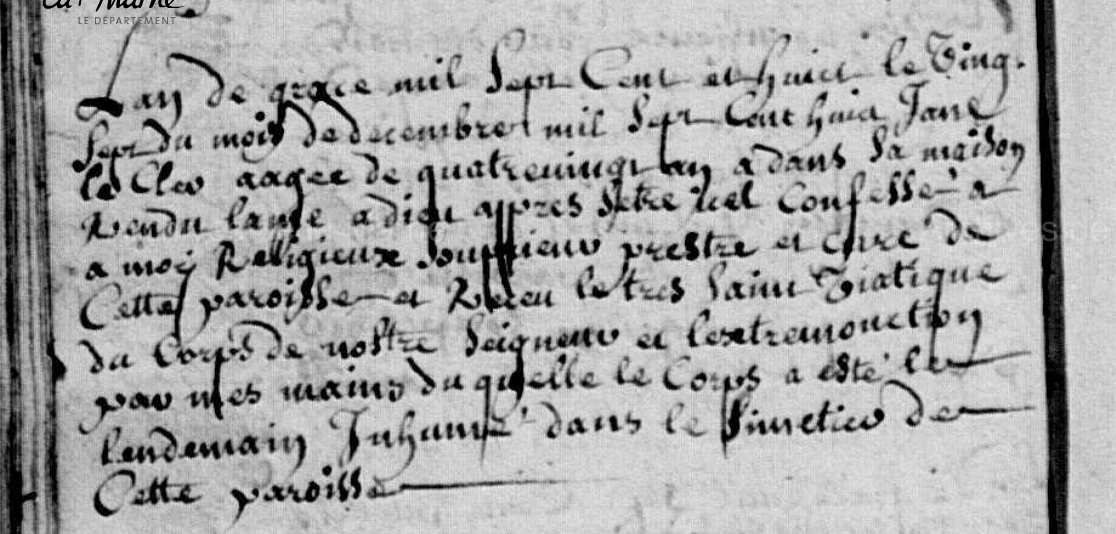 La Marne
LE DÉPARTEMENT
Lan de grace mil Sept Cent et huict le Ving
Sept du mois de decembre mil Sept Cent huict Jane
le Cler aagee de quatrevingt an a dans Sa maison
Rendu lame a dieu appres Setre Confesse a
a moi Religieux prestre et cure de
Cette paroisse et Receu le tres Saint Viatique
du Corps de nostre Seigneur et lextremonction
par mes mains duquelle le Corps a esté le
lendemain Inhumé dans le Simetier de
Cette paroisse